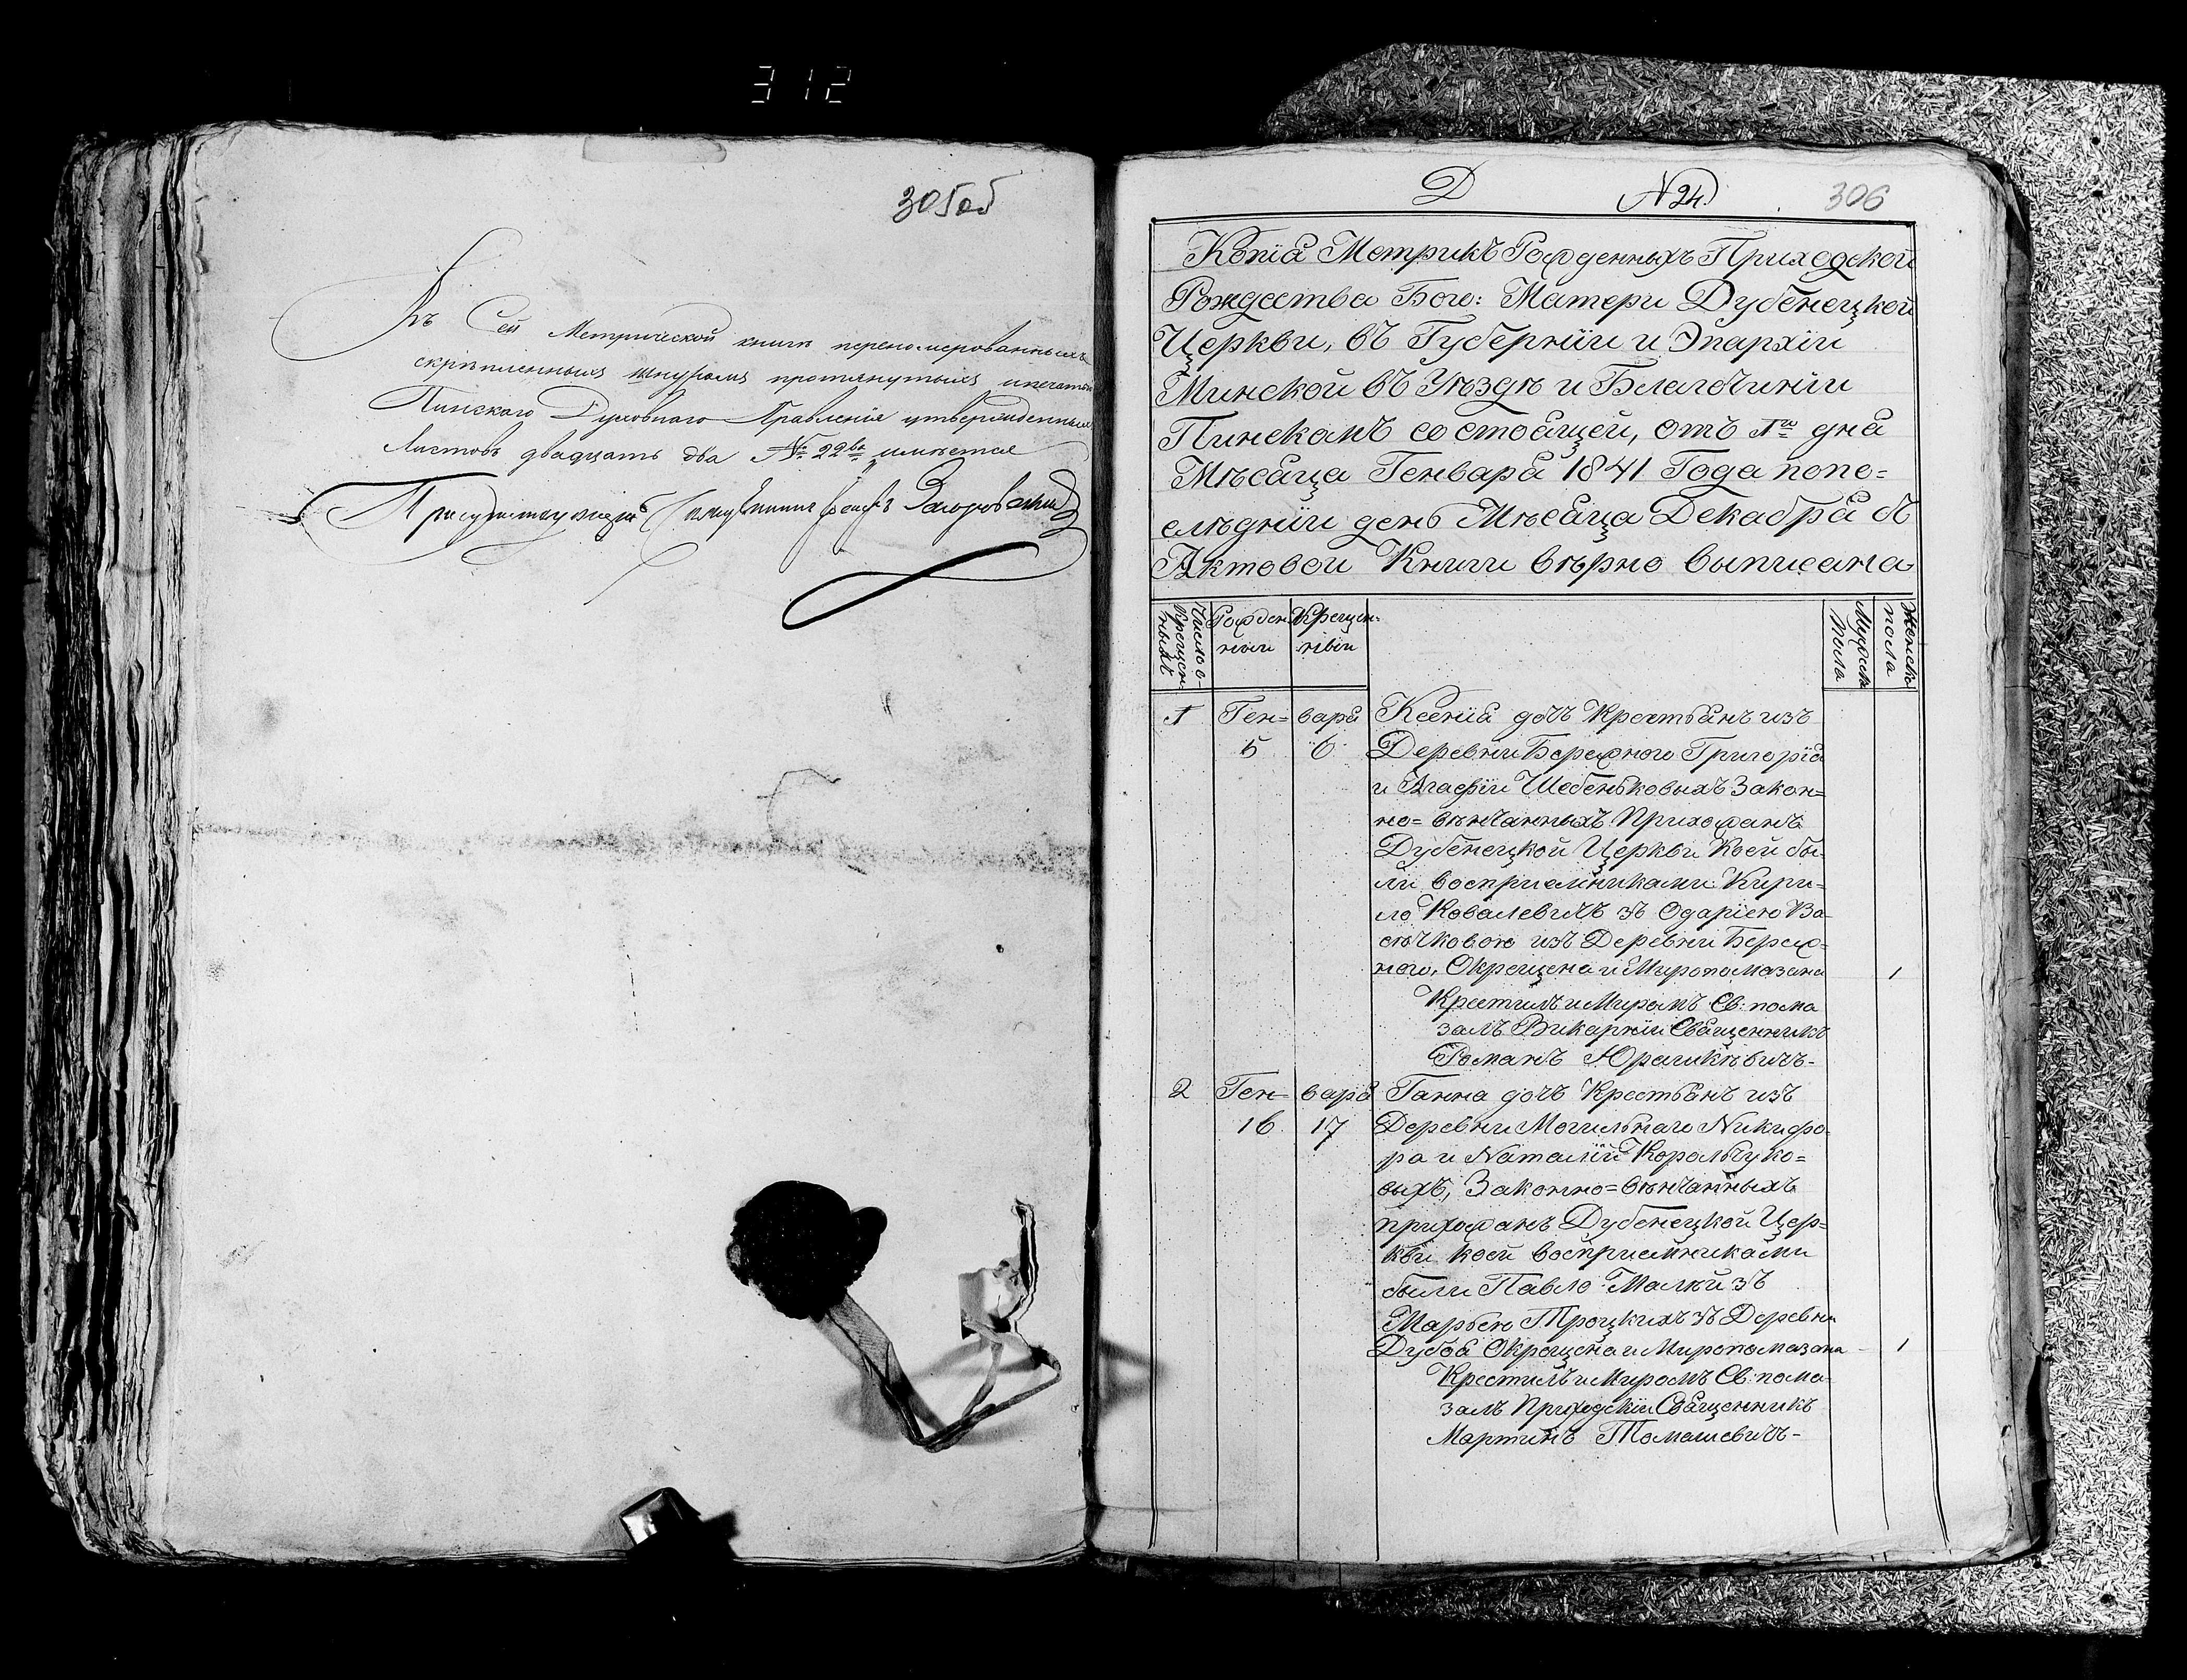 312
305об
Въ Сей Метрической книги переномерованныхъ
скрѣпленныхъ шнуромъ протянутыхъ и печатью
Пинскаго Духовнаго Правленія утвержденныхъ
Листовъ двадцать два № 22ва имѣется
Присутствующій Священникъ
Д № 24 306
Копія Метрикъ Рожденныхъ Приходской
Рождества Бого: Матери Дубенецкой
Церкви, въ Губерніи и Эпархіи
Минской въ Уѣздѣ и Благочиніи
Пинскомъ состоящей, отъ 1го дня
Мѣсяца Генваря 1841 Года по по=
слѣдній день Мѣсяца Декабря съ
Актовой Книги вѣрно выписана
Число о-
Крещен-
ныхъ
Рожден-
ніи
Крещен-
ніи
Мужеск
пола
Женскъ
пола
1 Ген= варя Ксенія дочь Крестьянъ изъ
5 6 Деревни Бережного Григорія
и Агафіи Шебеньковыхъ Закон=
но=вѣнчанныхъ Прихожанъ
Дубенецкой Церкви Коей бы-
ли восприемниками Кири=
ло Ковалевичъ зъ Одаріею Ва-
сѣчковою изъ Деревни Береж=
ного, Окрещена и Миропомазана 1
Крестилъ и Миромъ Св: пома
залъ Викарній Священникъ
Романъ Юрашкѣвичъ-
2 Ген= варя Ганна дочь Крестьянъ изъ
16 17 Деревни Могильнаго Никифо-
ра и Наталіи Корольчуко=
выхъ, Законно=вѣнчанныхъ
прихожанъ Дубенецкой Цер=
кви коей восприемниками
были Павло Малый зъ
Марьею Троцкихъ зъ Деревни
Дубоя Окрещена и Миропомазана - 1
Крестилъ и Миромъ Св: пома-
залъ Приходскій Священникъ
Мартинъ Томашевичъ-